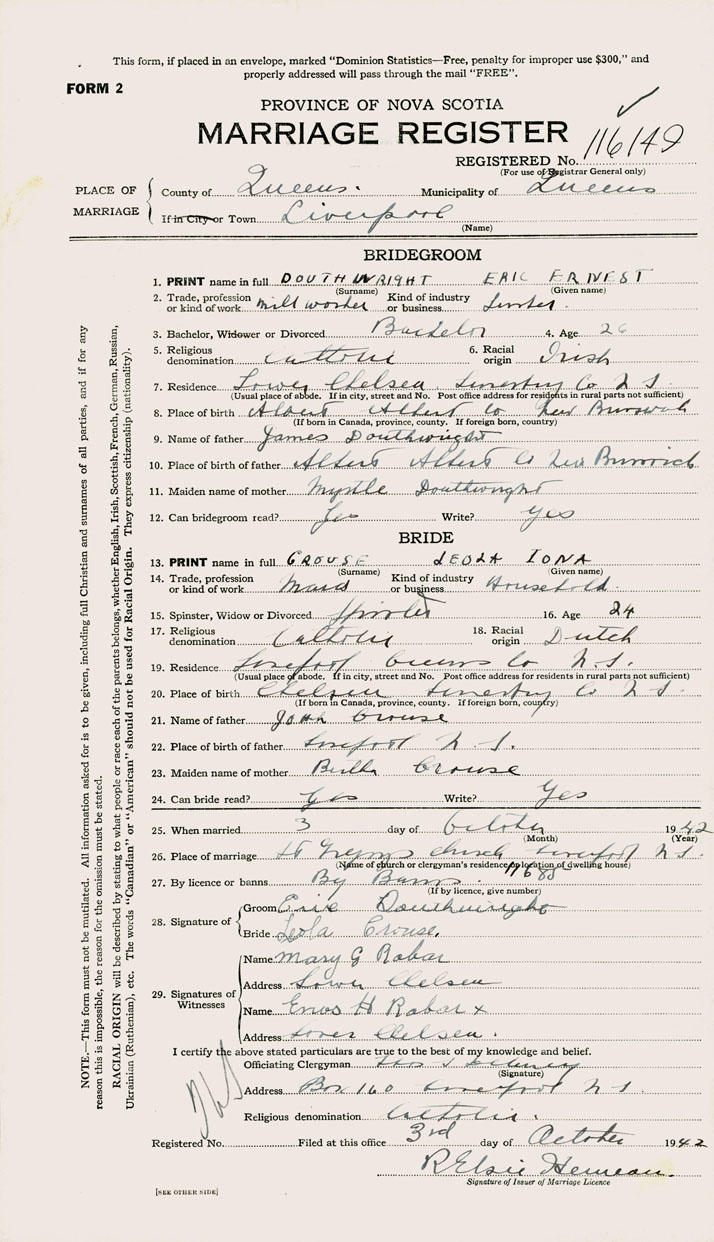 This form, if placed in an envelope, marked "Dominion Statistics—Free, penalty for improper use $300," and
properly addressed will pass through the mail "FREE".
FORM 2
PROVINCE OF NOVA SCOTIA
MARRIAGE REGISTER
REGISTERED No. 116149
(For use of Registrar General only)
PLACE OF MARRIAGE
County of Queens. Municipality of Queens
If in City or Town Liverpool
(Name)
BRIDEGROOM
1. PRINT name in full DOUTHWRIGHT ERIC ERNEST
(Surname) (Given name)
2. Trade, profession or kind of work mill worker Kind of industry or business Lumber.
3. Bachelor, Widower or Divorced Bachelor 4. Age 26
5. Religious denomination Catholic 6. Racial origin Irish
7. Residence Lower Chelsea Lunenburg Co N S.
(Usual place of abode. If in city, street and No. Post office address for residents in rural parts not sufficient)
8. Place of birth Albert Albert Co New Brunswick
(If born in Canada, province, county. If foreign born, country)
9. Name of father James Douthwright
10. Place of birth of father Albert Albert Co New Brunswick
11. Maiden name of mother Myrtle Douthwright
12. Can bridegroom read? Yes Write? Yes
BRIDE
13. PRINT name in full CROUSE LEOLA IONA
(Surname) (Given name)
14. Trade, profession or kind of work Maid Kind of industry or business Household.
15. Spinster, Widow or Divorced Spinster 16. Age 24
17. Religious denomination Catholic 18. Racial origin Dutch
19. Residence Liverpool Queens Co N.S.
(Usual place of abode. If in city, street and No. Post office address for residents in rural parts not sufficient)
20. Place of birth Chelsea Lunenburg Co N S.
(If born in Canada, province, county. If foreign born, country)
21. Name of father John Crouse
22. Place of birth of father Liverpool N.S.
23. Maiden name of mother Bertha Crouse
24. Can bride read? Yes Write? Yes
25. When married 3 day of October 1942
(Month) (Year)
26. Place of marriage St Gregory's Church Liverpool N S.
(Name of church or clergyman's residence or location of dwelling house)
27. By licence or banns By Banns.
(If by licence, give number)
28. Signature of
Groom Eric Douthwright
Bride Leola Crouse.
29. Signatures of Witnesses
Name Mary G Rabar
Address Lower Chelsea
Name Enos H Rabar x
Address Lower Chelsea.
I certify the above stated particulars are true to the best of my knowledge and belief.
Officiating Clergyman
(Signature)
Address Box 160 Liverpool N S
Religious denomination Catholic.
Registered No. Filed at this office 3rd day of October 1942
R Elsie Hemeon.
Signature of Issuer of Marriage Licence
[SEE OTHER SIDE]
NOTE.—This form must not be mutilated. All information asked for is to be given, including full Christian and surnames of all parties, and if for any
reason this is impossible, the reason for the omission must be stated.
RACIAL ORIGIN will be described by stating to what people or race each of the parents belongs, whether English, Irish, Scottish, French, German, Russian,
Ukrainian (Ruthenian), etc. The words "Canadian" or "American" should not be used for Racial Origin. They express citizenship (nationality).